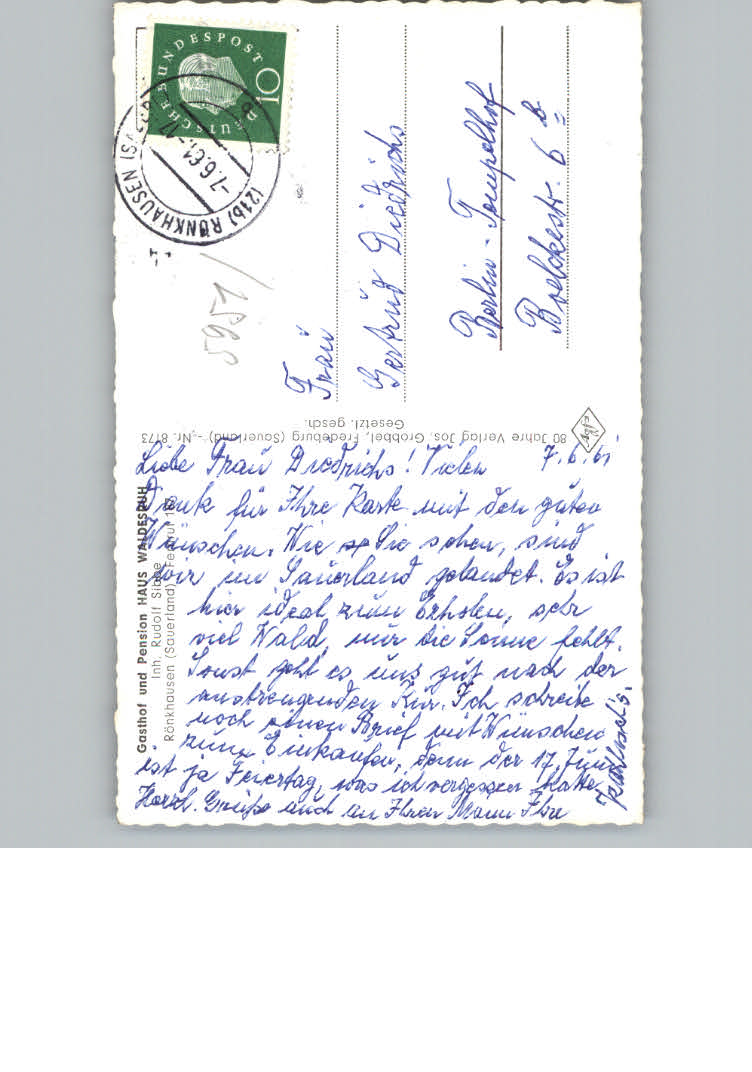 DEUTSCHE BUNDESPOST
10
(21b) RÖNKHAUSEN
-7.6.61.-17
5951/
Frau
Gertrud Diedrichs
Berlin - Tempelhof
Boelckestr. 6
80 Jahre Verlag Jos. Grobbel, Fredeburg (Sauerland) - Nr. 8173
Gesetzl. gesch.
Gasthof und Pension HAUS WALDESRUH
Inh. Rudolf
Rönkhausen (Sauerland) Fernruf
Liebe Frau Diedrichs! Vielen 7.6.61
Dank für Ihre Karte mit den guten
Wünschen. Wie Sie sehen, sind
wir im Sauerland gelandet. Es ist
hier ideal zum Erholen, sehr
viel Wald, nur die Sonne fehlt.
Sonst geht es uns gut nach der
anstrengenden Kur. Ich schreibe
noch einen Brief mit Wünschen
zum Einkaufen, denn der 17. Juni
ist ja Feiertag, was ich vergessen hatte.
Herzl. Grüße auch an Ihren Mann Ihre